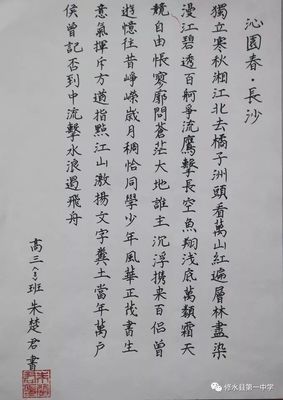 沁園春·長沙
獨立寒秋湘江北去橘子洲頭看萬山紅遍層林盡染
漫江碧透百舸爭流鷹擊長空魚翔淺底萬類霜天
競自由悵寥廓問蒼茫大地誰主沉浮携来百侣曾
遊憶往昔崢嶸歲月稠恰同學少年風華正茂書生
意氣揮斥方遒指點江山激揚文字糞土當年萬戶
侯曾記否到中流擊水浪遏飛舟
高三班朱楚君書
修水县第一中学